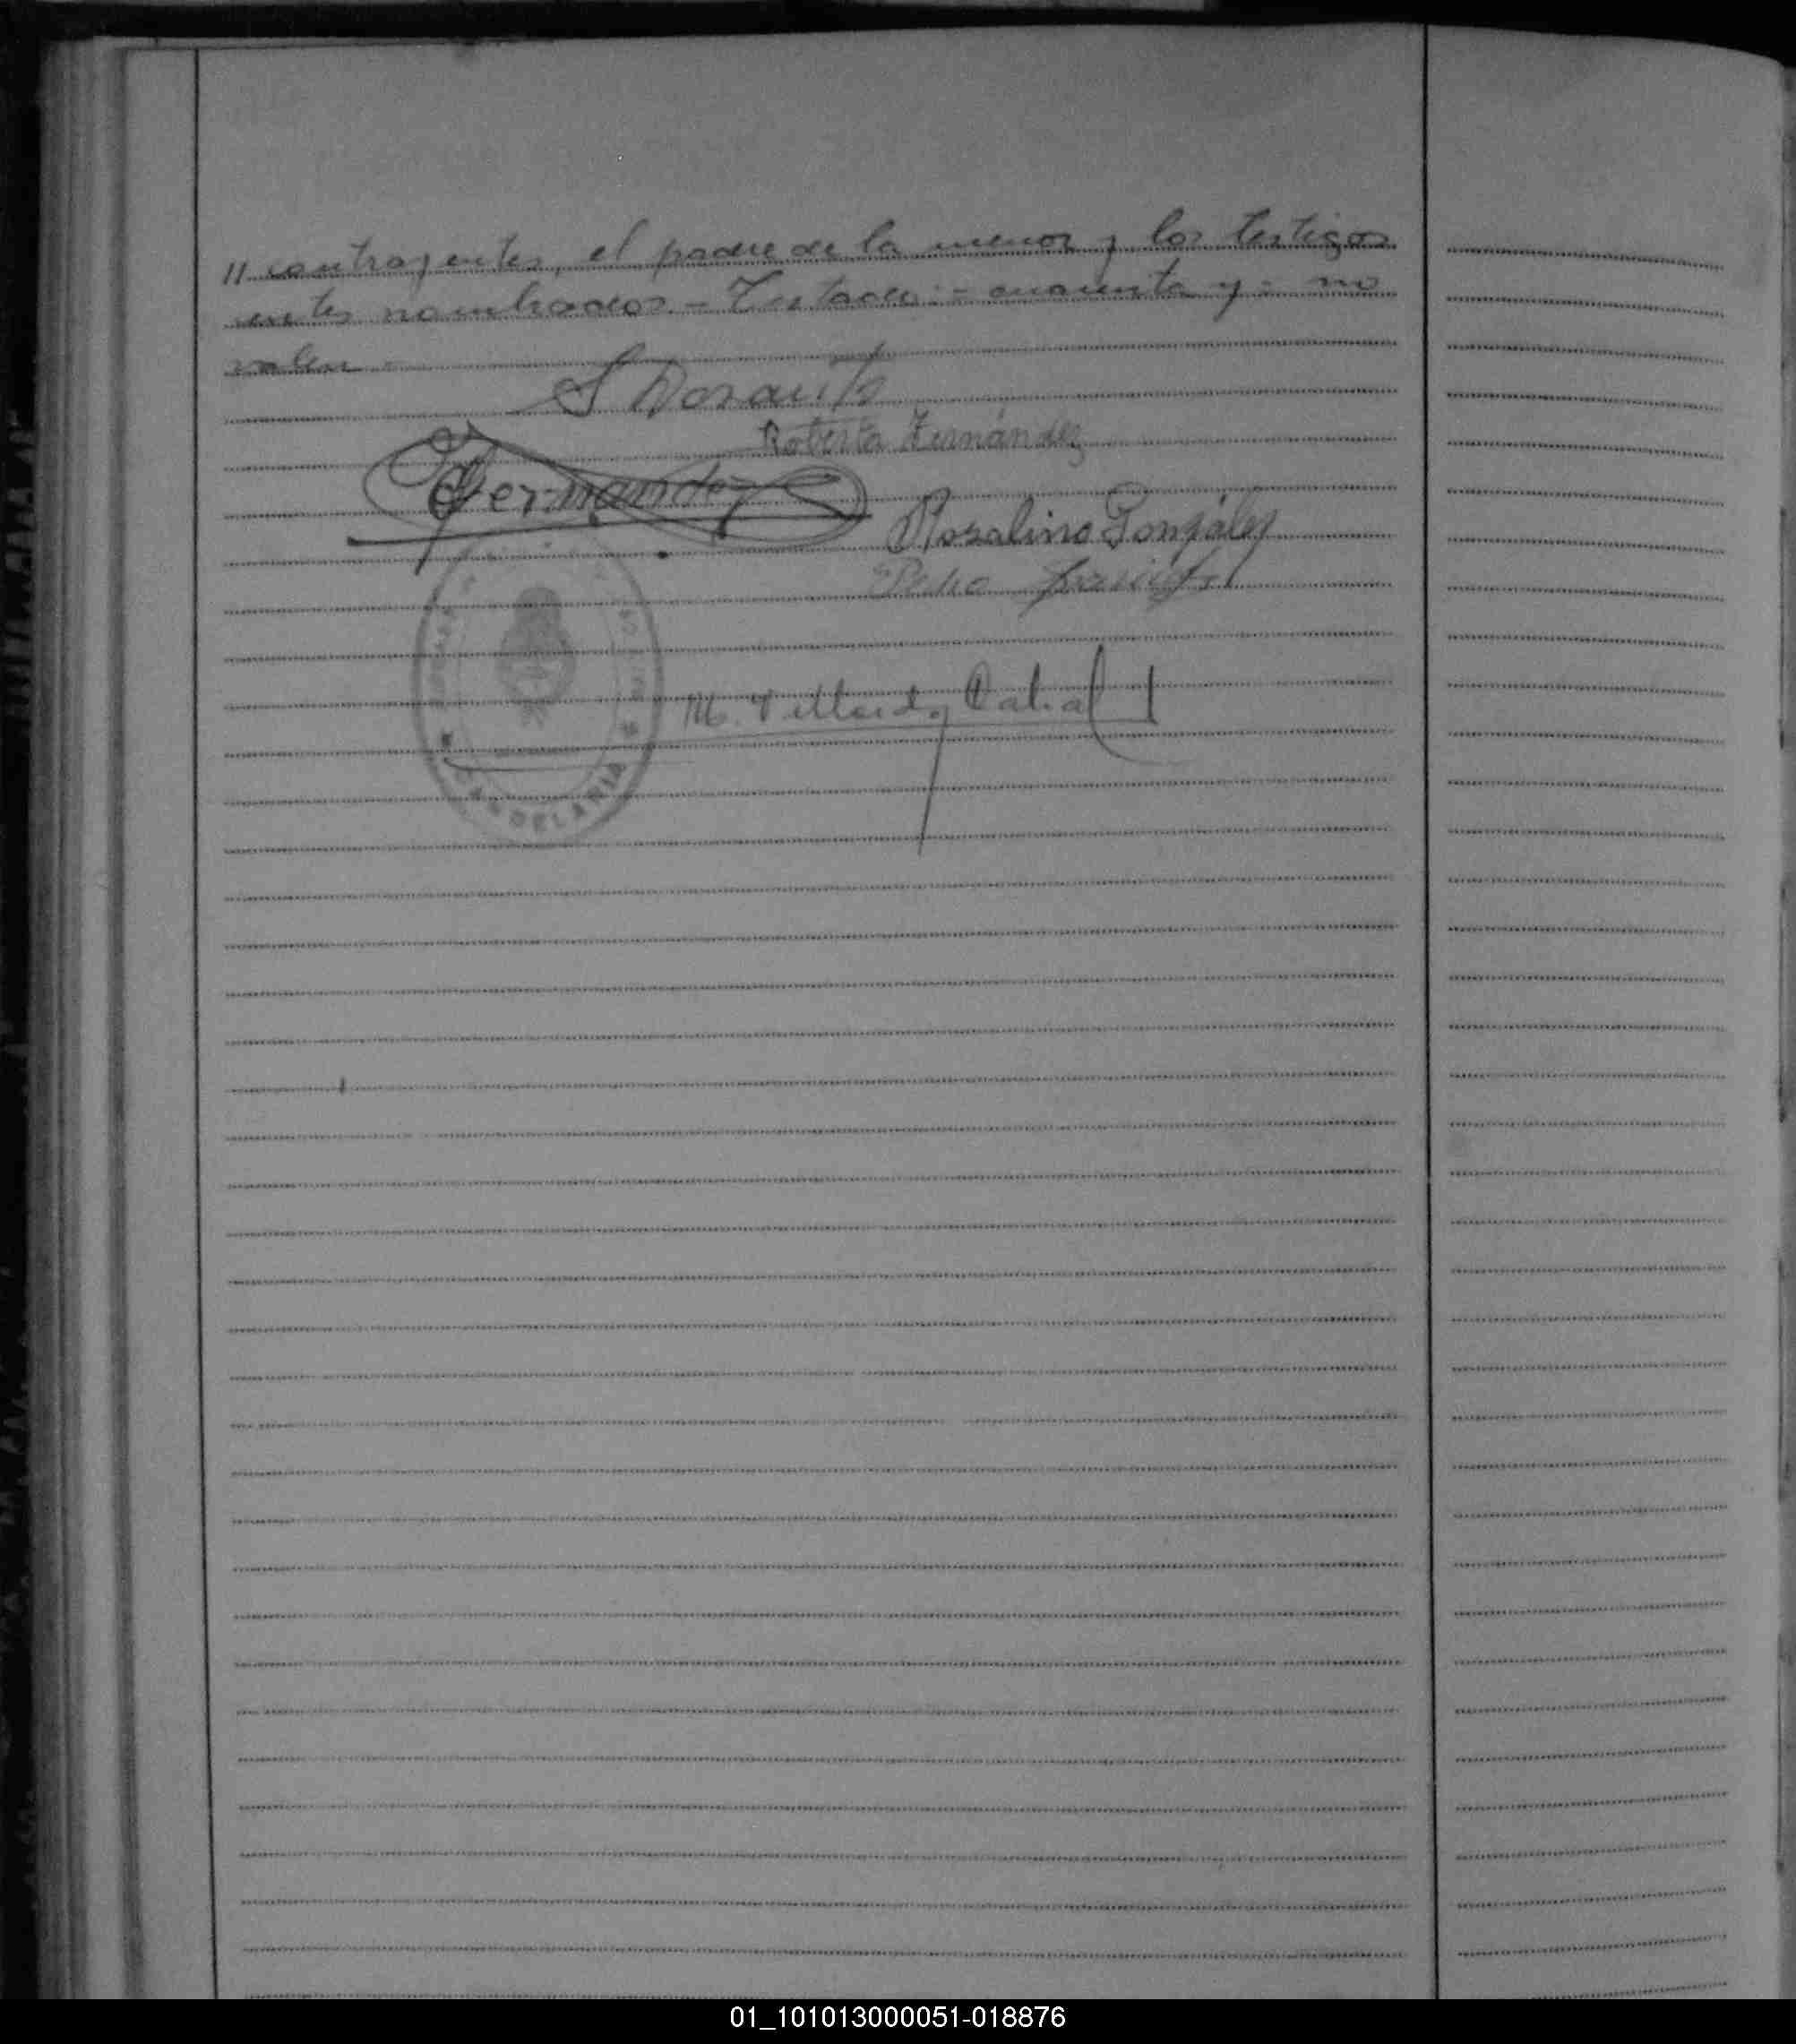 // contrayentes, el padre de la menor y los testigos
antes nombrados.- Testado:- cuarenta y- no
valen.-
Roberta Fernández
Fernandez
Rosalino González
M. Cabral
CANDELARIA
01_101013000051-018876